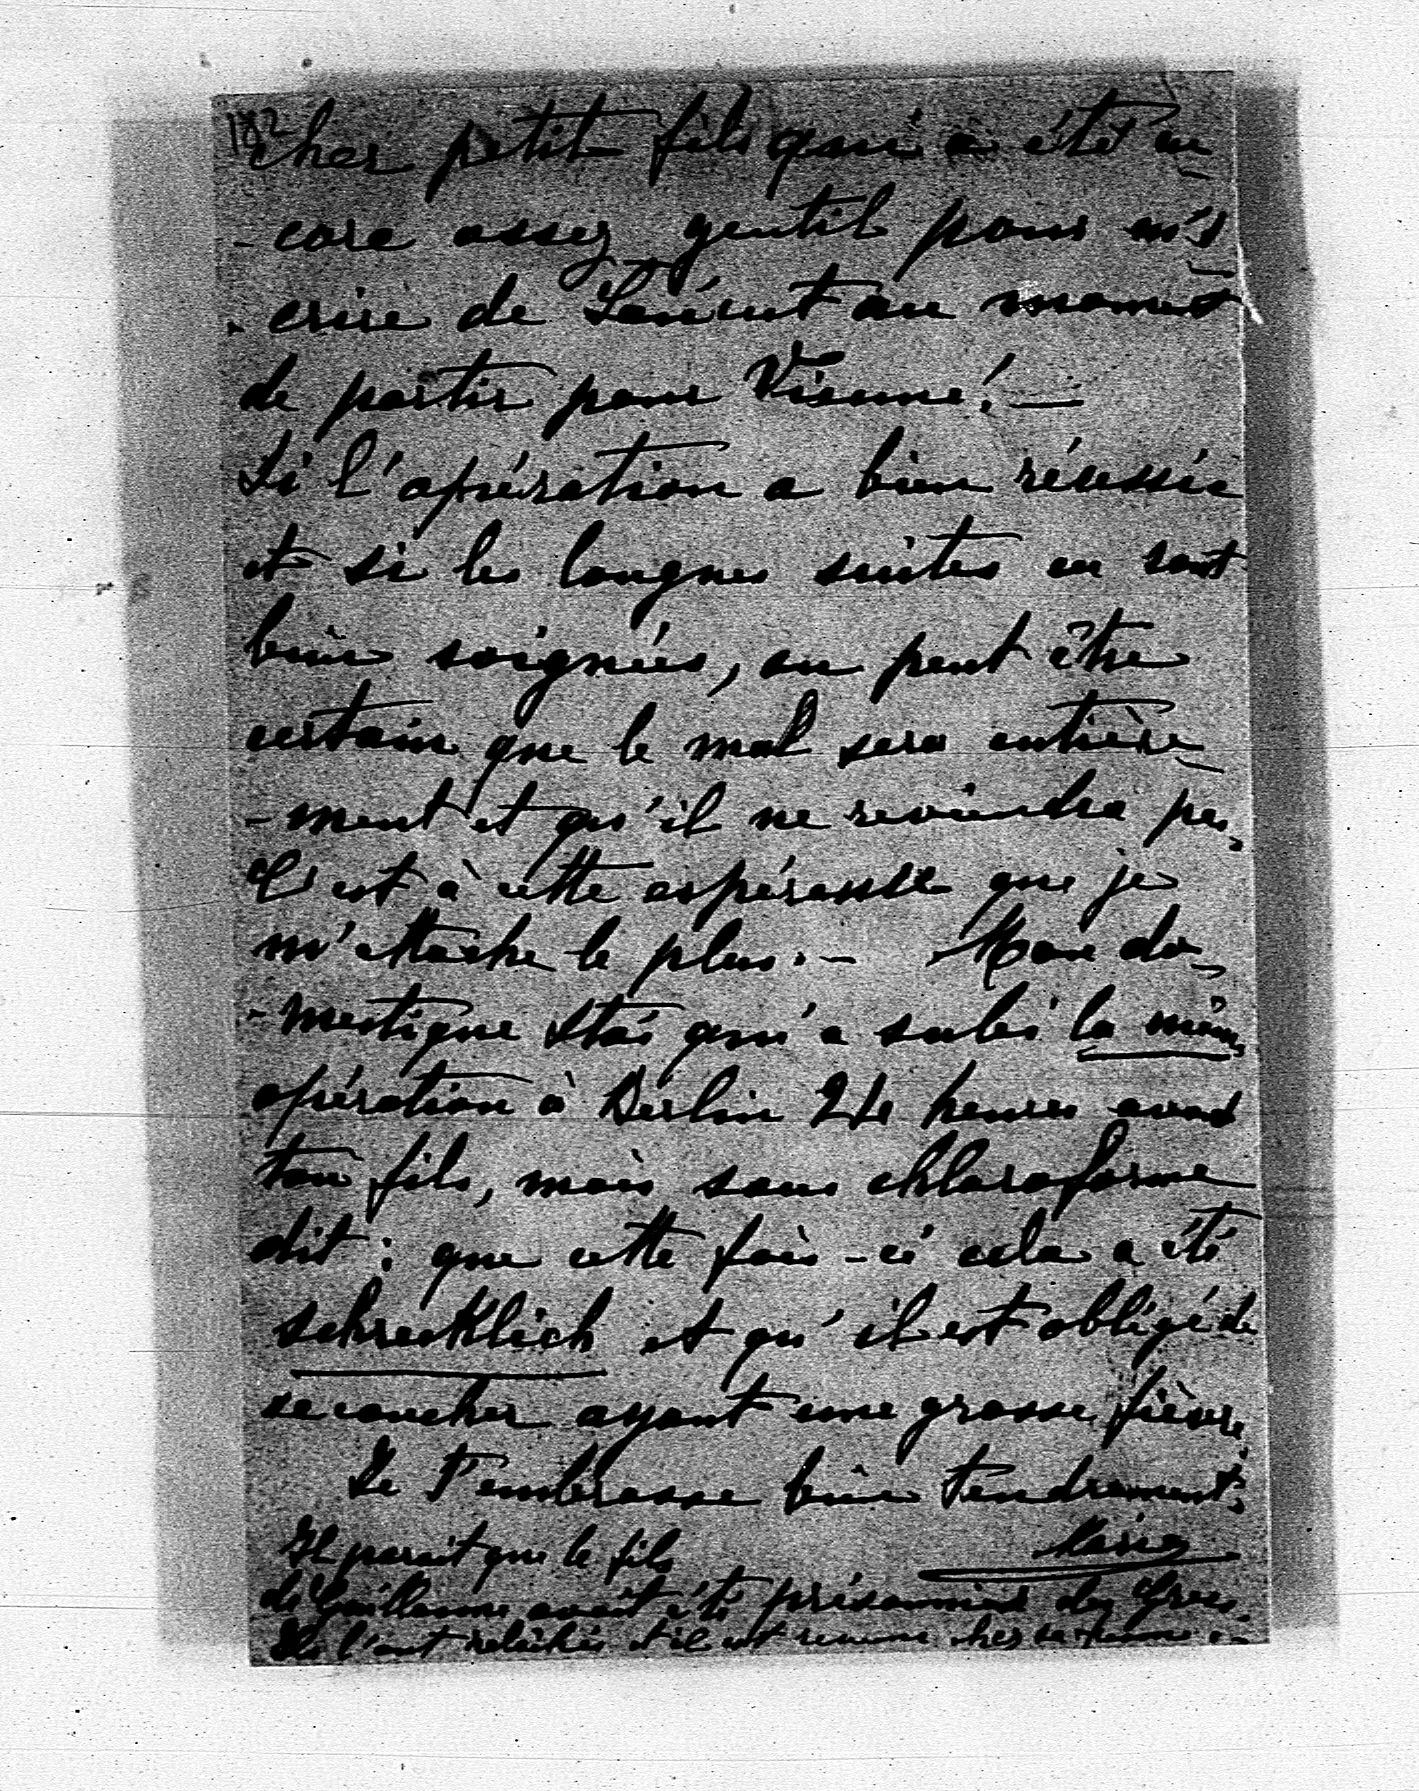 182
cher petit fils qui a été en-
-core assez gentil pour m'é-
-crire de Łańcut au moment
de partir pour Vienne! —
Si l'opération a bien réussie
et si les longues suites en sont
bien soignées, on peut être
certain que le mal sera entière-
-ment et qu'il ne reviendra pas.
C'est à cette espérance que je
m'attache le plus. — Mon do-
-mestique Staś qui a subi la même
opération à Berlin 24 heures avant
ton fils, mais sans chloroforme
dit: que cette fois-ci cela a été
schrecklich et qu'il est obligé de
se coucher ayant une grosse fièvre.
Je t'embrasse bien tendrement.
Marie
Il parait que le fils
de Guillaume avait été prisonnier des Grecs.
Ils l'ont relâché et il est revenu chez sa femme. —